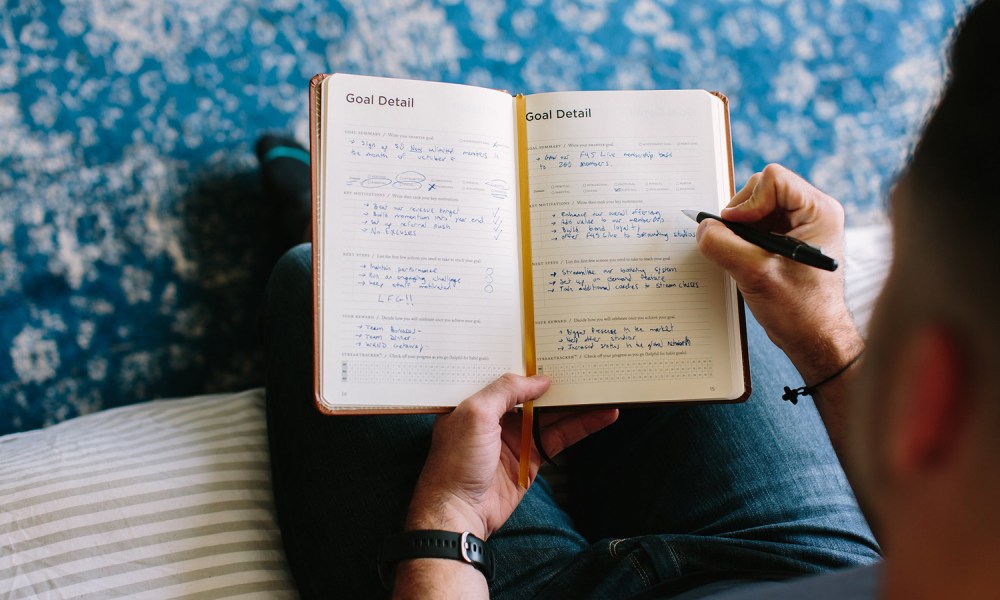 Goal Detail
GOAL SUMMARY / Write your awesome goal.
→ Sign up 30 new unlimited members in
the month of october
KEY MOTIVATIONS / Write down your key motivations.
→ Beat our revenue target
→ Build momentum into year end
→ Set up referral push
→ No Excuses
NEXT STEPS / List the first few actions you need to take to reach your goal.
→ performance
→ Run an engaging challenge
→ Keep staff motivated
LFG!!
YOUR REWARD / Decide how you will celebrate once you achieve your goal.
→ Team Bonuses
→ Team Dinner
→
STREAKTRACKER™ / Check off your progress as you go (helpful for habit goals).
Goal Detail
GOAL SUMMARY / Write your awesome goal.
→ Grow our F45 Live membership base
to 200 members.
KEY MOTIVATIONS / Write down your key motivations.
→ Enhance our overall offering
→ Add value to our members
→ Build brand loyalty
→ Offer F45 Live to surrounding studios
NEXT STEPS / List the first few actions you need to take to reach your goal.
→ Streamline our booking system
→ Set up on demand feature
→ Train additional coaches to stream classes
YOUR REWARD / Decide how you will celebrate once you achieve your goal.
→ Bigger Presence in the market
→ Help other studios
→ Increased status in the global network
STREAKTRACKER™ / Check off your progress as you go (helpful for habit goals).